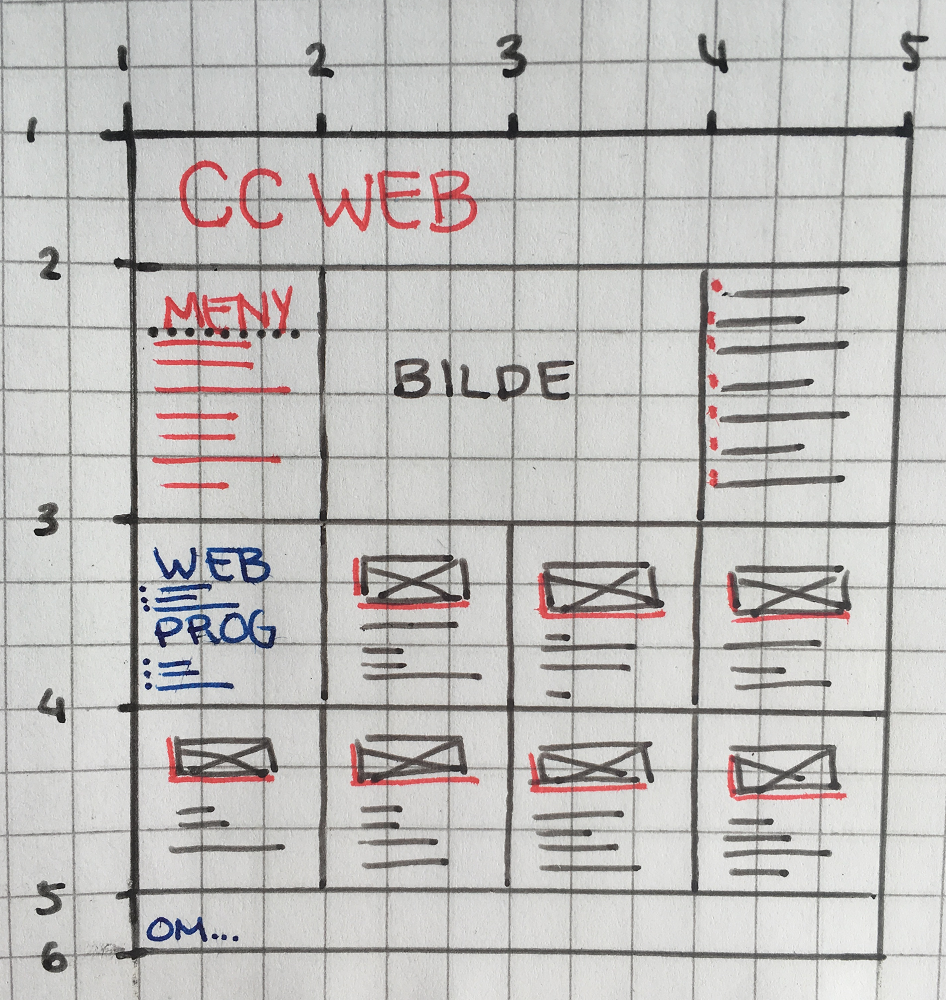 1 2 3 4 5
1
CC WEB
2
MENY
BILDE
3
WEB
PROG
4
5
OM...
6